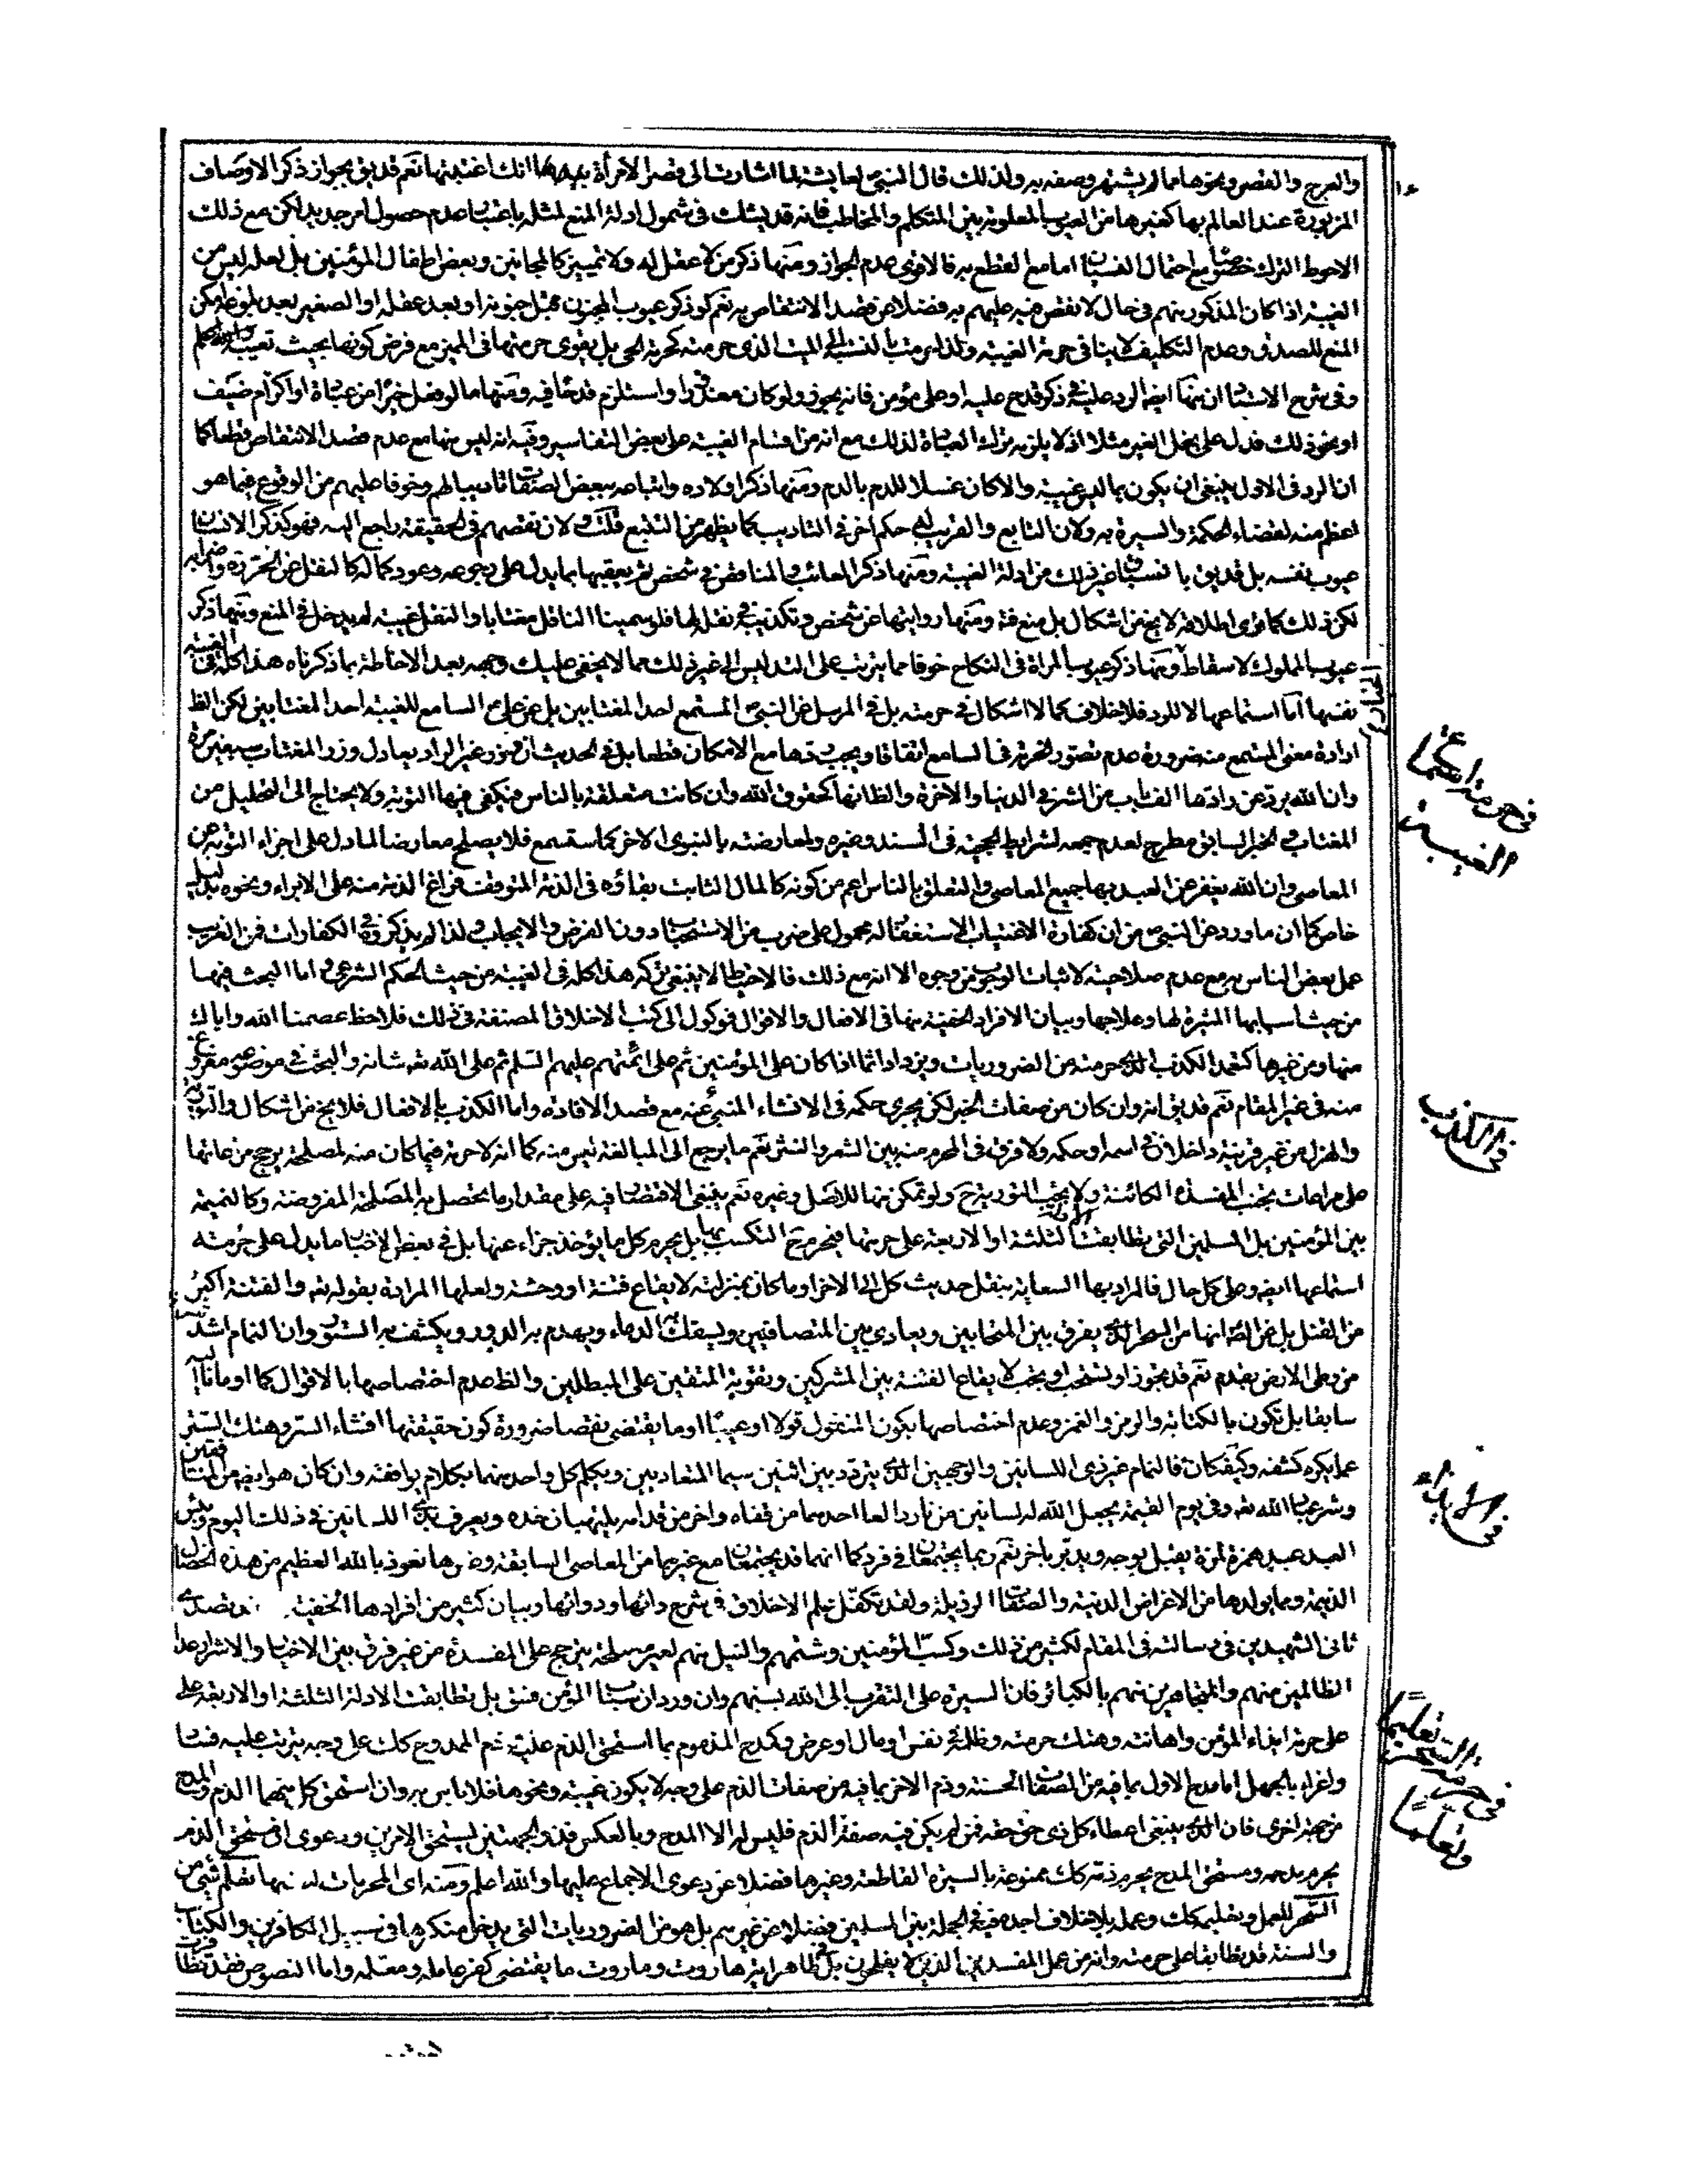 والعرج والقصر ونحوها مما لم يشتهر وصفه به ولذلك قال النبي لعايشة لما اشارت الى قصر الامرأة انك اغتبتها نعم قد يق بجواز ذكر الاوصاف
المزبورة عند العالم بها كغيرها من العيوب المعلومة بين المتكلم والمخاطب فانه قد يشك في شمول ادلة المنع لمثله باعتبار عدم حصول امر جديد لكن مع ذلك
الاحوط الترك خصوصا مع احتمال النسيان اما مع القطع به فالاقوى عدم الجواز ومنها ذكر من لا عقل له ولا تمييز كالمجانين وبعض اطفال المؤمنين بل لعله ليس من
الغيبة اذا كان المذكور منهم في حال لا نقص فيه عليهم به فضلا عن قصد الانتقاص به نعم لو ذكر عيوب المجنون قبل جنونه او بعد عقله او الصغير بعد بلوغه امكن
المنع للصدق وعدم التكليف لا ينافي حرمة الغيبة الميت الذي حرمته كحرمة الحي بل يقوى حرمتها في المميز مع فرض كونها بحيث
وفي شرح الاستاد ان منها ايضا الرد على في ذكر قدح عليه او على مؤمن فانه يجوز ولو كان معذورا واستلزم قدحا فيه ومنها ما لو فعل خيرا من عبادة او اكرام ضيف
او نحو ذلك فدل على بخل الغير مثلا اذ لا يلزمه ترك العبادة لذلك مع انه من اقسام الغيبة على بعض التفاسير وفيه انه ليس منها مع عدم قصد الانتقاص قطعا كما
ان الرد في الاول ينبغي ان يكون بما ليس غيبة والا كان غسلا للدم بالدم ومنها ذكر اولاده واتباعه ببعض الصفات تاديبا لهم وخوفا عليهم من الوقوع فيما هو
اعظم منه لقضاء الحكمة والسيرة به ولان التابع والقريب لهم حكم اخر في التاديب كما يظهر من التتبع قلت ولان نقصهم في الحقيقة راجع اليه فهو كذكر الانسان
عيوب نفسه بل قد يق بانسياق غير ذلك من ادلة الغيبة ومنها ذكر المعائب والمناقص في شخص ثم يعقبها بما يدل على رجوعه وعود كماله كما نقل عن
لكن ذلك كما ترى اطلاقه لا يخ من اشكال بل منع فة ومنها روايتها عن شخص وتكذيبه في نقل فلو سمينا الناقل مغتابا والنقل غيبة لم يدخل في المنع ومنها ذكر
عيوب المملوك ومنها ذكر عيوب المراة في النكاح خوفا مما يترتب على التدليس الى غير ذلك مما لا يخفى عليك وجهه بعد الاحاطة بما ذكرناه هذا كله في الغيبة
نفسها اما استماعها لا للرد فلا خلاف كما لا اشكال في حرمته بل في المرسل عن النبي المستمع احد المغتابين بل عن على السامع للغيبة احد المغتابين لكن الظ
ارادة معنى المستمع منه ضرورة عدم تصور الحرمة في السامع اتفاقا ويجب ردها مع الامكان قطعا بل في الحديث ان وزر غير الراد يعادل وزر المغتاب سبعين مرة
وان الله يرد عن رادها الف باب من الشر في الدنيا والاخرة والظ انها كحقوق الله وان كانت متعلقة بالناس فيكفي فيها التوبة ولا يحتاج الى التحليل من
المغتاب والخبر السابق مطرح لعدم جمعه لشرايط الحجية في السند وغيره ولمعارضته بالنبوي الاخر كما ستسمع فلا يصلح معارضا لما دل على اجزاء التوبة عن
المعاصي وان الله يغفر عن العبد بها جميع المعاصي والتعلق بالناس اعم من كونه كالمال الثابت بقاؤه في الذمة المتوقف فراغ الذمة منه على الابراء ونحوه بدليل
خاص كما ان ما ورد عن النبي من ان كفارة الاغتياب الاستغفار له محمول على ضرب من الاستحباب دون الفرض والايجاب ولذا لم يذكروه في الكفارات فمن الغريب
عمل بعض الناس به مع عدم صلاحيته لاثبات الوجوب من وجوه الا انه مع ذلك فالاحتياط لا ينبغي تركه هذا كله في الغيبة من حيث الحكم الشرعي واما البحث فيها
من حيث اسبابها المثيرة لها وعلاجها وبيان الافراد الخفية منها في الافعال والاقوال فموكول الى كتب الاخلاق المصنفة في ذلك فلاحظ عصمنا الله واياك
منها ومن غيرها كتعمد الكذب الذي حرمته من الضروريات ويزداد اثما اذا كان على المؤمنين ثم على ائمتهم عليهم السلم ثم على الله تعه شانه والبحث في موضوعه مفروغ
منه في غير المقام نعم قد يق انه وان كان من صفات الخبر لكن يجري حكمه في الانشاء المنبئ عنه مع قصد الافادة واما الكذب بالافعال فلا يخ من اشكال والتورية
والهزل من غير قرينة داخلان في اسمه او حكمه ولا فرق في المحرم منه بين الشعر والنثر نعم ما يرجع الى المبالغة ليس منه كما انه لا حرمة فيما كان منه لمصلحة يرجح مراعاتها
على مراعات تجنب المفسدة الكائنة ولا يجب التورية ح ولو تمكن منها للاصل وغيره نعم ينبغي الاقتصار فيه على مقدار ما يحصل به المصلحة المفروضة وكالنميمة
بين المؤمنين بل المسلمين التي تطابقت الادلة الثلثة او الاربعة على حرمتها فيحرم ح التكسب بها بل يحرم كل ما يؤخذ جزاء عنها بل في بعض الاخبار ما يدل على حرمة
استماعها ايضا وعلى كل حال فالمراد بها السعاية بنقل حديث كل الى الاخر او ما كان بمنزلته لايقاع فتنة او وحشة ولعلها المرادة بقوله تعه والفتنة اكبر
من القتل بل عن الص انها من السحر الذي يفرق بين المتحابين ويعادي بين المتصافيين ويسفك بها الدماء ويهدم به الدور ويكشف به الستور وان النمام اشد
من وطى الارض بقدم نعم قد يجوز او تستحب او يجب لايقاع الفتنة بين المشركين وتقوية المتقين على المبطلين والظ عدم اختصاصها بالاقوال كما اومانا اليه
سابقا بل تكون بالكتابة والرمز والغمز وعدم اختصاصها بكون المنقول قولا او عيبا او ما يقتضي نقصا ضرورة كون حقيقتها افشاء السر وهتك الستر
عما يكره كشفه وكيف كان فالنمام غير ذي اللسانين والوجهين الذي يتردد بين اثنين سيما المتعاديين ويكلم كل واحد منهما بكلام يوافقه وان كان هو ايضا من المنافقين
وشر عباد الله تعه وفي يوم القيمة يجعل الله له لسانين من نار دالعا احدهما من قفاه واخر من قدامه يلتهبان خده ويعرف بذي اللسانين في ذلك اليوم وبئس
العبد عبد همزة لمزة يقبل بوجه ويدبر باخر نعم ربما يجتمعان في فرد كما انهما قد يجتمعان مع غيرهما من المعاصي السابقة وغيرها نعوذ بالله العظيم من هذه الخصال
الذميمة ومما يولدها من الاغراض الدنية والصفات الرذيلة ولقد تكفل علم الاخلاق في شرح دائها ودوائها وبيان كثير من افرادها الخفية
ثاني الشهيدين في رسالته في المقام لكثير من ذلك وكسب المؤمنين وشتمهم والنيل منهم لغير مصلحة يترجح على المفسدة من غير فرق بين الاخيار والاشرار عدا
الظالمين منهم والمتجاهرين منهم بالكبائر فان السيرة على التقرب الى الله بسبهم وان ورد ان سباب المؤمن فسق بل تطابقت الادلة الثلثة او الاربعة على
على حرمة ايذاء المؤمن واهانته وهتك حرمته وظلمه في نفس او مال او عرض وكمدح المذموم بما استحق الذم عليه وذم الممدوح كك على وجه يترتب عليه فساد
واغراء بالجهل اما مدح الاول بما فيه من الصفات الحسنة وذم الاخر بما فيه من صفات الذم على وجه لا يكون غيبة ونحوها فلا باس به وان استحق كل منهما الذم والمدح
من جهة اخرى فان الذي ينبغي اعطاء كل ذي حق حقه فمن لم يكن فيه صفة الذم فليس له الا المدح وبالعكس فذو الجهتين يستحق الامرين ودعوى ان مستحق الذم
يحرم مدحه ومستحق المدح يحرم ذمه كك ممنوعة بالسيرة القاطعة وغيرها فضلا عن دعوى الاجماع عليها والله اعلم ومنه اى المحرمات تعلم شئ من
السحر للعمل وتعليمه كك وعمله بلا خلاف اجده فيه في الجملة بين المسلمين فضلا عن غيرهم بل هو من الضروريات التي يدخل منكرها في سبيل الكافرين والكتاب
والسنة قد تطابقا على حرمته وانه من عمل المفسدين الذين لا يفلحون بل ظاهر اية هاروت وماروت ما يقتضي كفر عامله ومعلمه واما النصوص فقد
في حرمة استماع
الغيبة
في الكذب
في الايذاء
في حرمة السحر تعليما
وتعلما